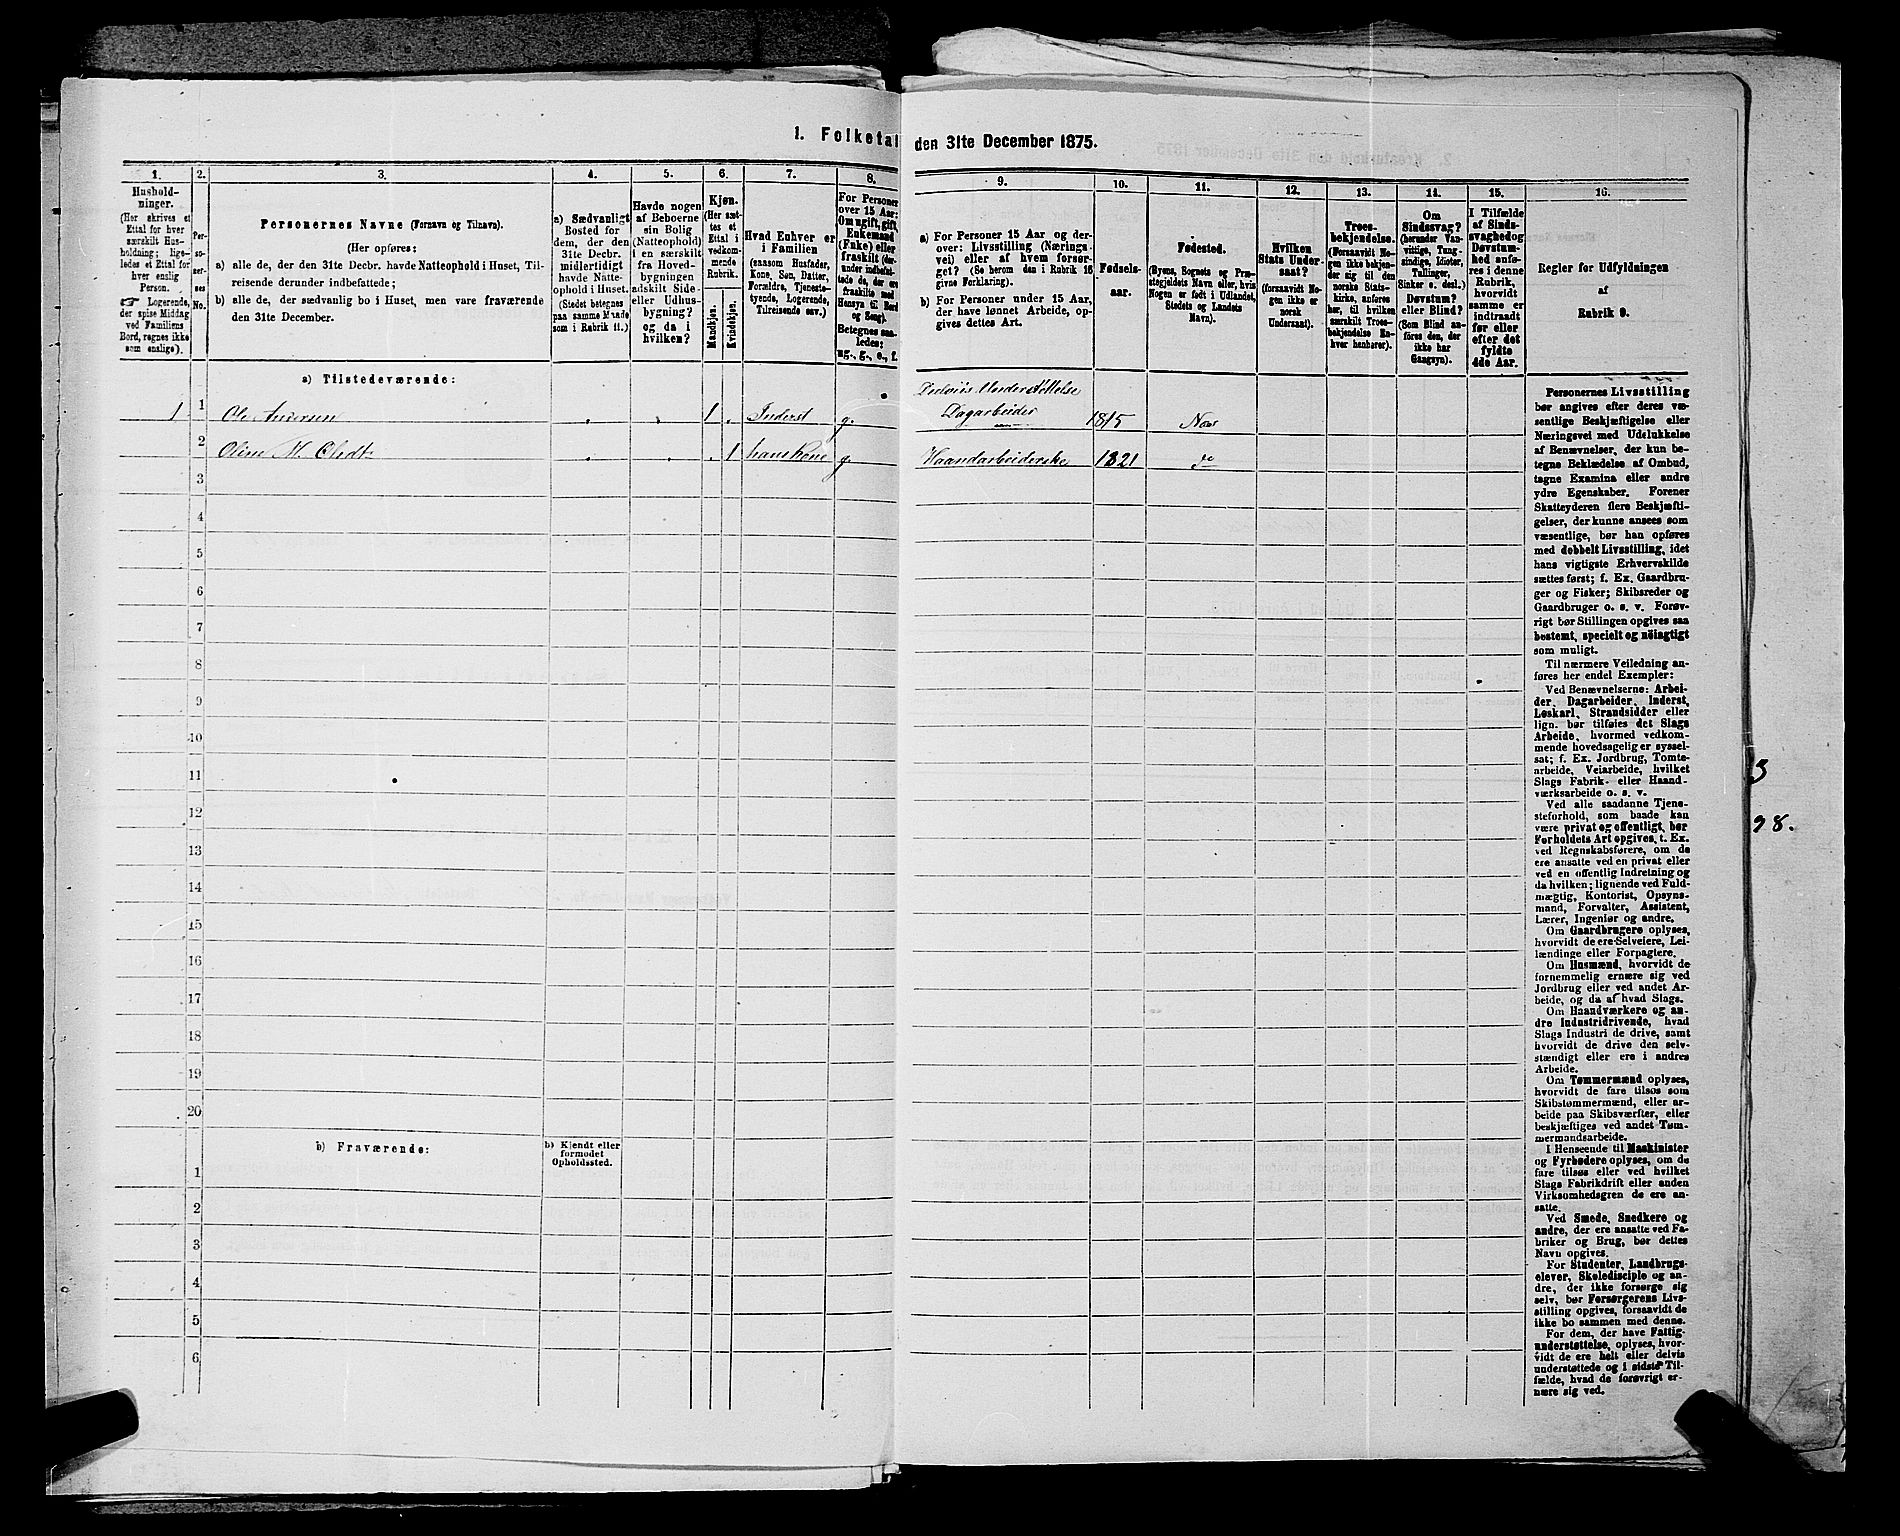 1. Folketal den 31te December 1875.
1. 2. 3. 4. 5. 6. 7. 8. 9. 10. 11. 12. 13. 14. 15. 16.
Hushold-
ninger.
(Her skrives et
Ettal for hver
særskilt Hus-
holdning; lige-
ledes et Ettal for
hver enslig
Person.
☞ Logerende,
der spise Middag
ved Familiens
Bord, regnes ikke
som enslige).
Per-
so-
ner-
nes
No.
Personernes Navne (Fornavn og Tilnavn).
(Her opføres:
a) alle de, der den 31te Decbr. havde Natteophold i Huset, Til-
reisende derunder indbefattede;
b) alle de, der sædvanlig bo i Huset, men vare fraværende
den 31te December.
a) Sædvanligt
Bosted for
dem, der den
31te Decbr.
midlertidigt
havde Natte-
ophold i Huset.
(Stedet betegnes
paa samme Maade
som i Rubrik 11.)
Havde nogen
af Beboerne
sin Bolig
(Natteophold)
i en særskilt
fra Hoved-
bygningen
adskilt Side-
eller Udhus-
bygning?
og da i
hvilken?
Kjøn.
(Her sæt-
tes et
Ettal i
vedkom-
mende
Rubrik.
Mandkjøn.
Kvindekjøn.
Hvad Enhver er
i Familien
(saasom Husfader,
Kone, Søn, Datter,
Forældre, Tjeneste-
tyende, Logerende,
Tilreisende osv.)
For Personer
over 15 Aar:
Om ugift, gift,
Enkemand
(Enke) eller
fraskilt (der-
under indbefat-
tede de, der ere
fraskilte med
Hensyn til Bord
og Seng).
Betegnes saa-
ledes:
ug., g., e., f.
a) For Personer 15 Aar og der-
over: Livsstilling (Nærings-
vei) eller af hvem forsør-
get? (Se herom den i Rubrik 16
givne Forklaring).
b) For Personer under 15 Aar,
der have lønnet Arbeide, op-
gives dettes Art.
Fødsels-
aar.
Fødested.
(Byens, Sognets og Præ-
stegjeldets Navn eller, hvis
Nogen er født i Udlandet,
Stedets og Landets
Navn).
Hvilken
Stats Under-
saat?
(forsaavidt No-
gen ikke er
norsk
Undersaat).
Troes-
bekjendelse.
(Forsaavidt No-
gen ikke bekjen-
der sig til den
norske Stats-
kirke, anføres
her, til hvilken
særskilt Troes-
bekjendelse En-
hver henhører).
Om
Sindssvag?
(herunder Van-
vittige, Tung-
sindige, Idioter,
Tullinger,
Sinker o. desl.)
Døvstum?
eller Blind?
(Som Blind an-
føres den, der
ikke har
Gangsyn).
I Tilfælde
af Sinds-
svaghed og
Døvstum-
hed anfø-
res i denne
Rubrik,
hvorvidt
samme er
indtraadt
før eller
efter det
fyldte
4de Aar.
Regler for Udfyldningen
af
Rubrik 9.
a) Tilstedeværende:
Delvis Understøttelse
1 1 Ole Andersen 1 Inderst g. Dagarbeider 1815 Næs
2 Oline M. Olsdt. 1 hans Kone g. Haandarbeiderske 1821 do
3
4
5
6
7
8
9
10
11
12
13
14
15
16
17
18
19
20
b) Fraværende:
b) Kjendt eller
formodet
Opholdssted.
1
2
3
4
5
6
Personernes Livsstilling
bør angives efter deres væ-
sentlige Beskjæftigelse eller
Næringsvei med Udelukkelse
af Benævnelser, der kun be-
tegne Beklædelse af Ombud,
tagne Examina eller andre
ydre Egenskaber. Forener
Skatteyderen flere Beskjæfti-
gelser, der kunne ansees som
væsentlige, bør han opføres
med dobbelt Livsstilling, idet
hans vigtigste Erhvervskilde
sættes først; f. Ex. Gaardbru-
ger og Fisker; Skibsreder og
Gaardbruger o. s. v. Forøv-
rigt bør Stillingen opgives saa
bestemt, specielt og nöiagtigt
som muligt.
Til nærmere Veiledning an-
føres her endel Exempler:
Ved Benævnelserne: Arbei-
der, Dagarbeider, Inderst,
Løskarl, Strandsidder eller
lign. bør tilføies det Slags
Arbeide, hvormed vedkom-
mende hovedsagelig er syssel-
sat; f. Ex. Jordbrug, Tomte-
arbeide, Veiarbeide, hvilket
Slags Fabrik- eller Haand-
værksarbeide o. s. v.
Ved alle saadanne Tjene-
steforhold, som baade kan
være privat og offentligt, bør
Forholdets Art opgives, t. Ex.
ved Regnskabsførere, om de
ere ansatte ved en privat eller
ved en offentlig Indretning og
da hvilken; lignende ved Fuld-
mægtig, Kontorist, Opsyns-
mand, Forvalter, Assistent,
Lærer, Ingeniør og andre.
Om Gaardbrugere oplyses,
hvorvidt de ere Selveiere, Lei-
lændinge eller Forpagtere.
Om Husmænd, hvorvidt de
fornemmelig ernære sig ved
Jordbrug eller ved andet Ar-
beide, og da af hvad Slags.
Om Haandværkere og an-
dre Industridrivende, hvad
Slags Industri de drive, samt
hvorvidt de drive den selv-
stændigt eller ere i andres
Arbeide.
Om Tømmermænd oplyses,
hvorvidt de fare tilsøs som
Skibstømmermænd, eller ar-
beide paa Skibsværfter, eller
beskjæftiges ved andet Tøm-
mermandsarbeide.
I Henseende til Maskinister
og Fyrbødere oplyses, om de
fare tilsøs eller ved hvilket
Slags Fabrikdrift eller anden
Virksomhedsgren de ere an-
satte.
Ved Smede, Snedkere og
andre, der ere ansatte ved Fa-
briker og Brug, bør dettes
Navn opgives.
For Studenter, Landbrugs-
elever, Skoledisciple og an-
dre, der ikke forsørge sig
selv, bør Forsørgerens Livs-
stilling opgives, forsaavidt de
ikke bo sammen med denne.
For dem, der have Fattig-
understøttelse, oplyses, hvor-
vidt de ere helt eller delvis
understøttede og i sidste Til-
fælde, hvad de forøvrigt er-
nære sig ved.
3
98.